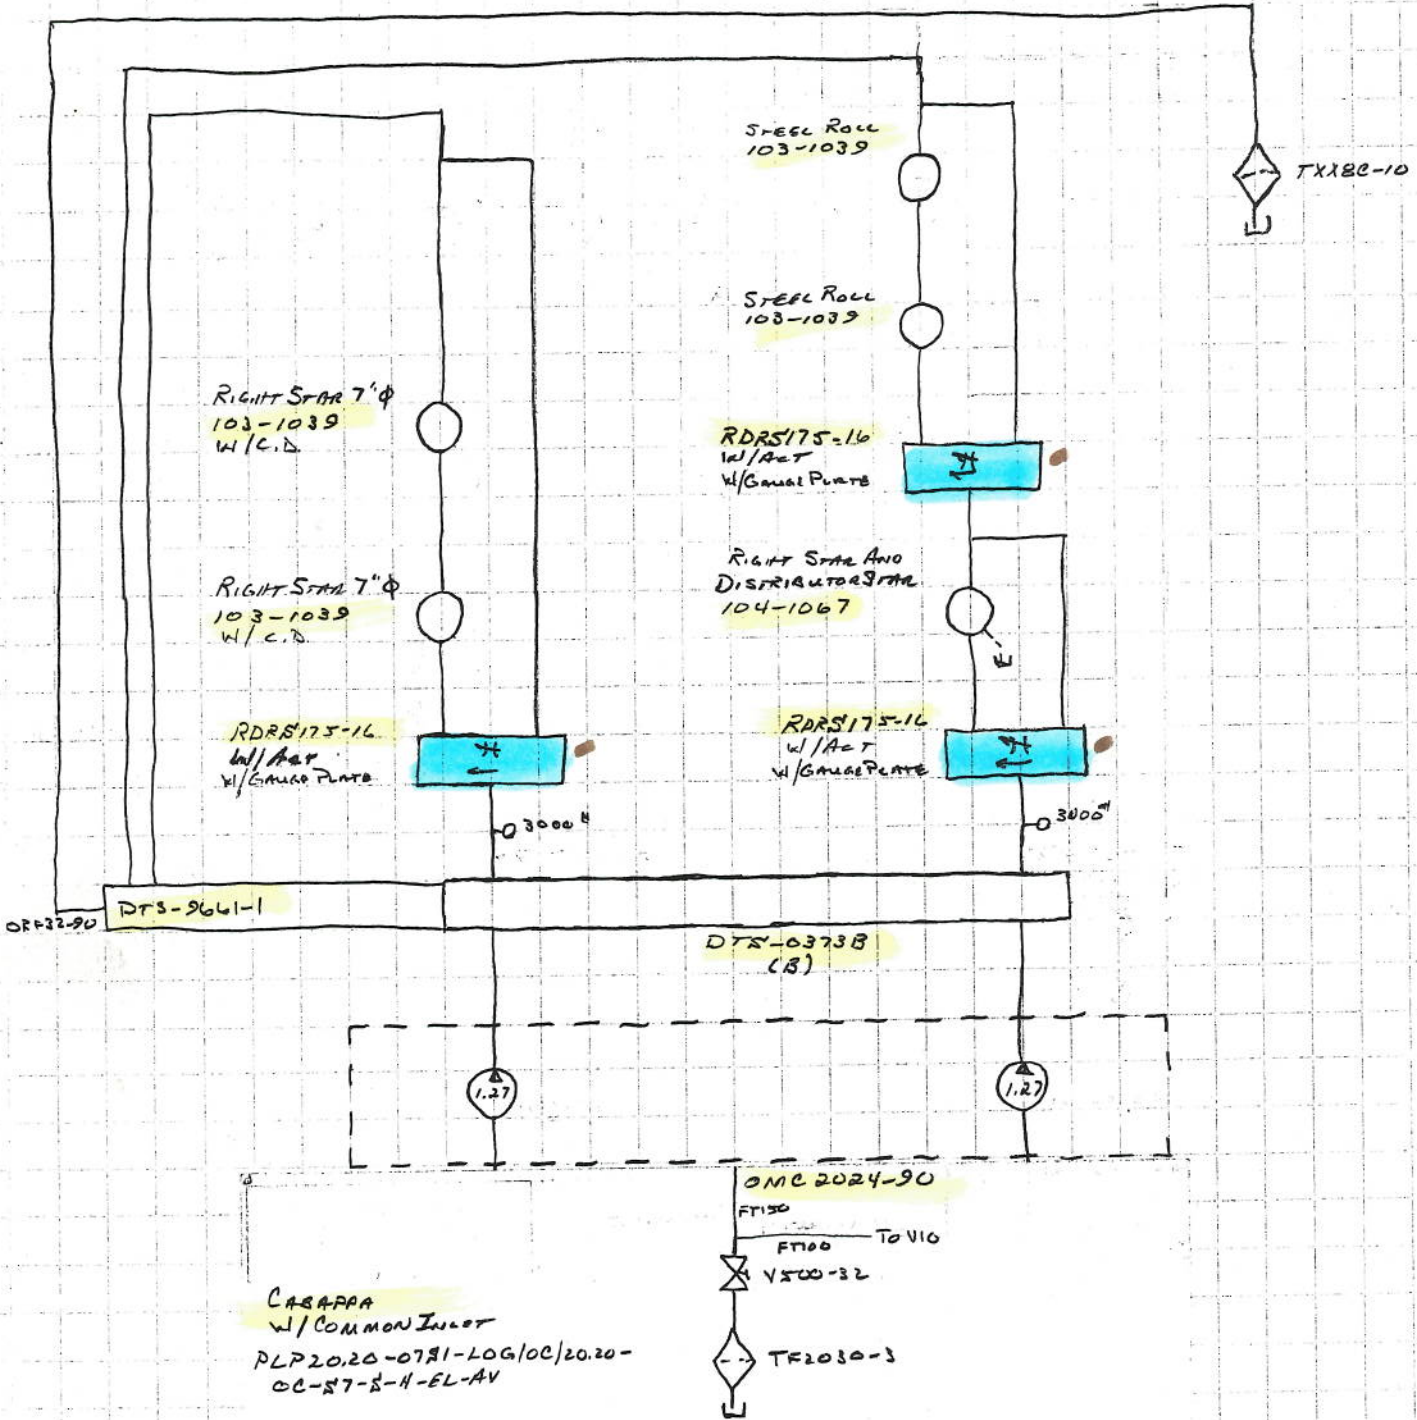 STEEL ROLL
103-1039
TXX8C-10
STEEL ROLL
103-1039
RIGHT STAR 7"Φ
103-1039
W/C.D.
RDRS175-16
W/ACT
W/GAUGE PLATE
RIGHT STAR AND
DISTRIBUTOR STAR
104-1067
RIGHT STAR 7"Φ
103-1039
W/C.D.
RDRS175-16
W/ACT
W/GAUGE PLATE
RDRS175-16
W/ACT
W/GAUGE PLATE
3000#
3000#
DTS-9661-1
ORF32-90
DTS-0373B
(B)
1.27
1.27
OMC 2024-90
FT150
FT100
TO V10
V500-32
CASAPPA
W/COMMON INLET
PLP20.20-07S1-LOG/OC/20.20-
OC-S7-S-N-EL-AV
TF2030-3